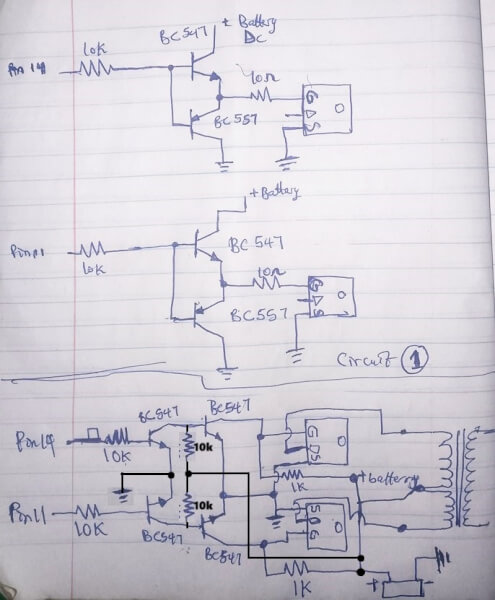 + Battery
DC
BC547
10K
Pin 14
10Ω
G
D
S
O
BC557
+Battery
BC547
Pin 11
10K
10Ω
G
D
S
O
BC557
Circuit 1
BC547
BC547
Pin14
10K
10k
G
D
S
O
1K
+battery
Pin11
10K
10k
BC547
BC547
S
D
G
O
1K
+